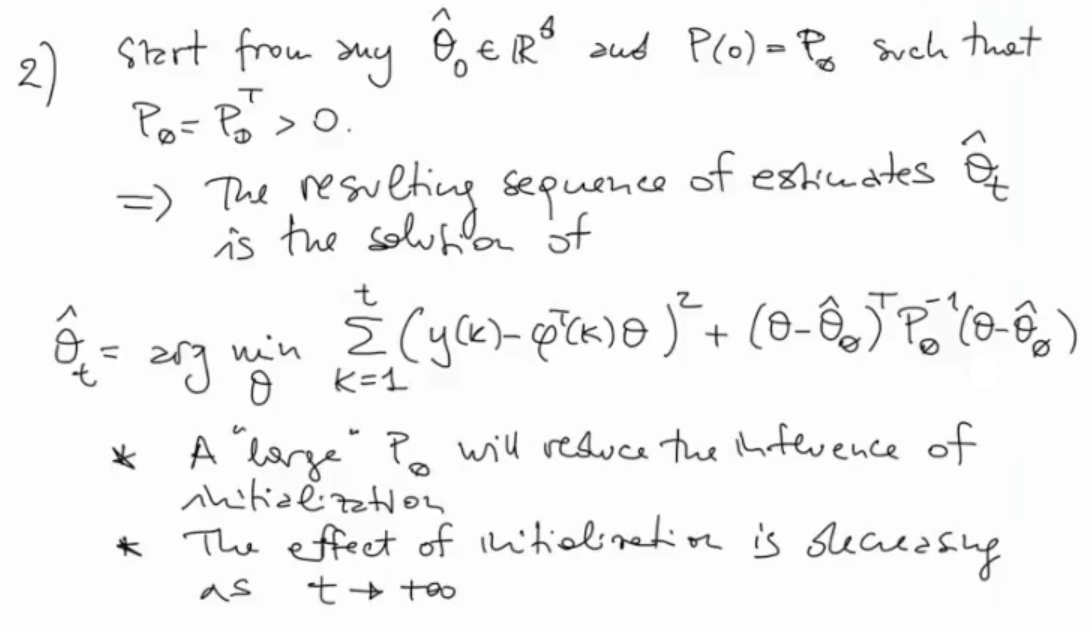 2) Start from any θ̂₀ ∈ ℝᵈ and P(0) = P₀ such that
P₀ = P₀ᵀ > 0.
⇒ The resulting sequence of estimates θ̂ₜ
is the solution of
θ̂ₜ = arg min_θ ∑_{k=1}^{t} (y(k) - φᵀ(k)θ)² + (θ - θ̂₀)ᵀ P₀⁻¹ (θ - θ̂₀)
* A "large" P₀ will reduce the influence of
initialization
* The effect of initialization is decreasing
as t → +∞